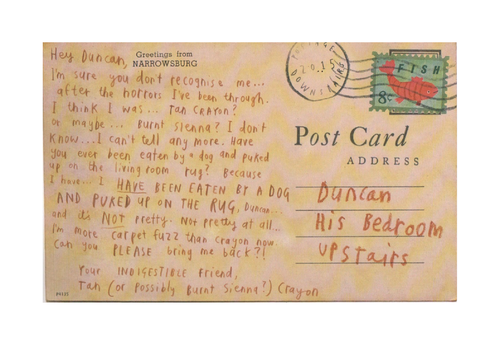 Greetings from
NARROWSBURG
Hey Duncan,
I'm sure you don't recognise me...
after the horrors I've been through.
I think I was... Tan Crayon?
or maybe... Burnt Sienna? I don't
know... I can't tell any more. Have
you ever been eaten by a dog and puked
up on the living room rug? Because
I have... I HAVE BEEN EATEN BY A DOG
AND PUKED UP ON THE RUG, Duncan...
and it's NOT pretty. Not pretty at all...
I'm more carpet fuzz than crayon now.
Can you PLEASE bring me back?!
Your INDIGESTIBLE friend,
Tan (or possibly Burnt Sienna?) Crayon
FISH
8c
Post Card
ADDRESS
Duncan
His Bedroom
Upstairs